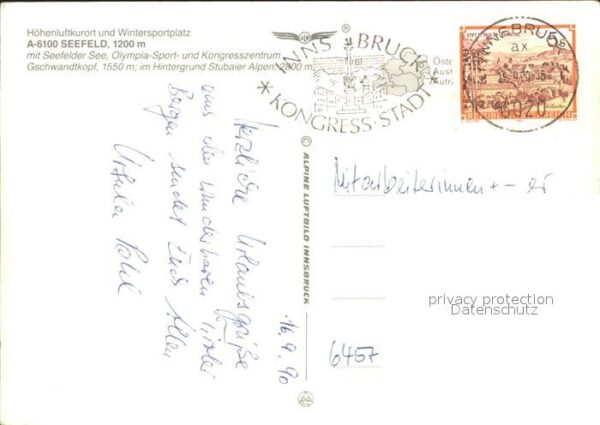 Höhenluftkurort und Wintersportplatz
A-6100 SEEFELD, 1200 m
mit Seefelder See, Olympia-Sport- und Kongresszentrum,
Gschwandtkopf, 1550 m; im Hintergrund Stubaier Alpen, 2800 m
INNSBRUCK
KONGRESS-STADT
INNSBRUCK
ax
6020
REPUBLIK ÖSTERREICH
© ALPINE LUFTBILD INNSBRUCK
16.9.90
Herzliche Urlaubsgrüße
aus den wunderbaren Tiroler
Bergen sendet Euch allen
Ursula
Mitarbeiterinnen + - er
6457
privacy protection
Datenschutz